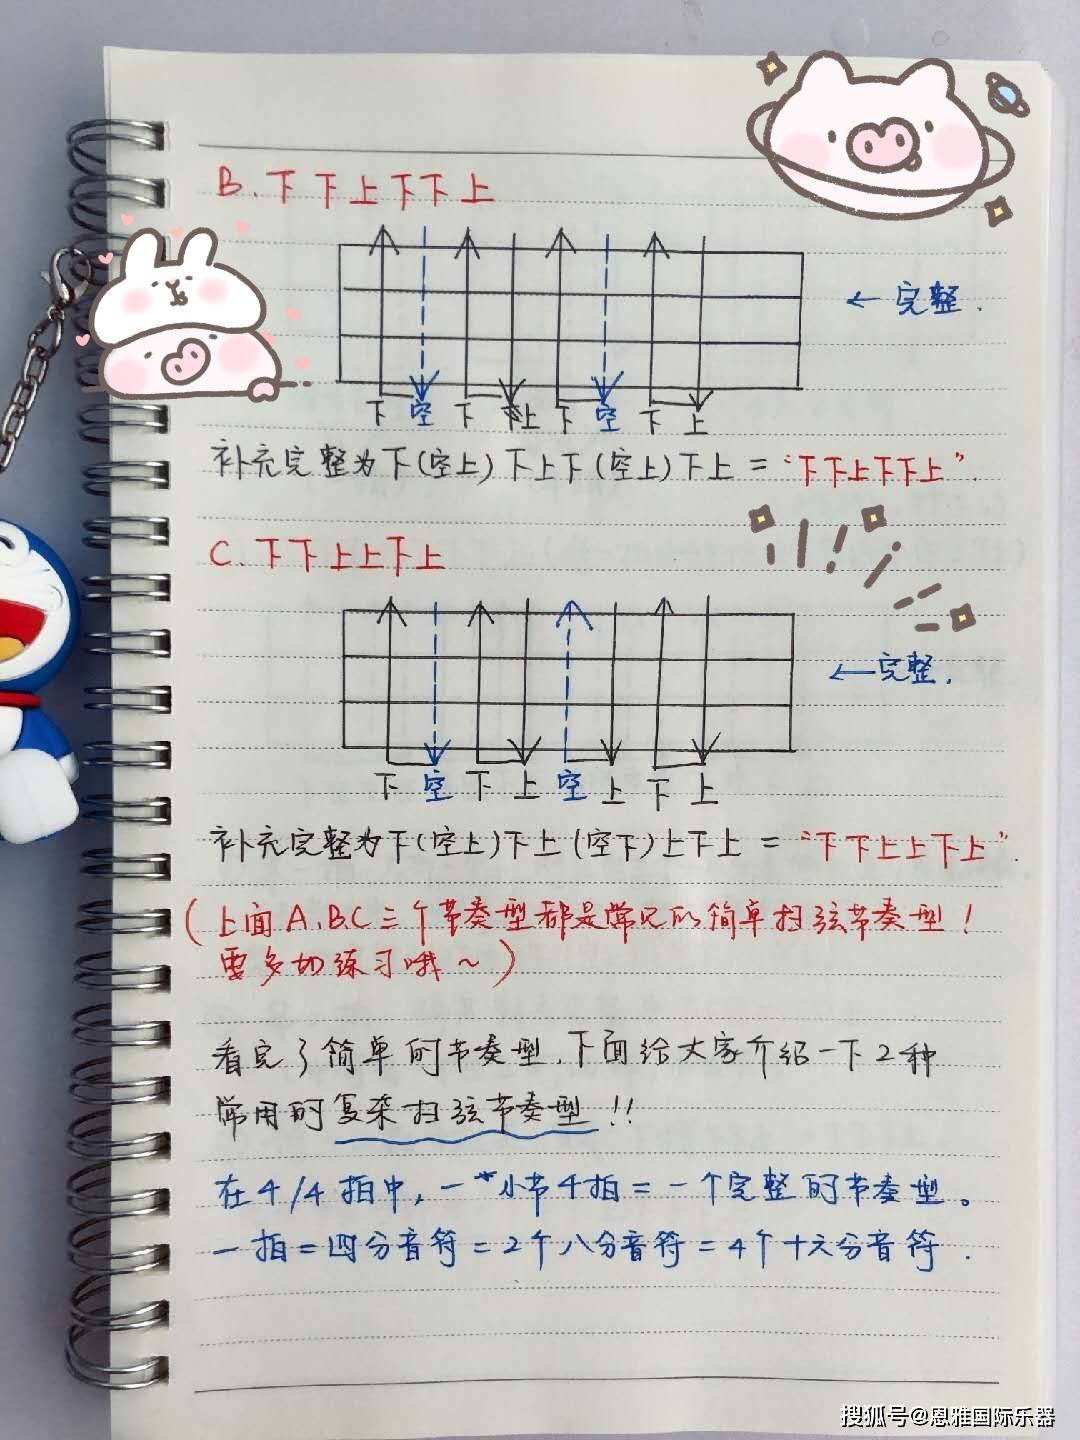 B. 下下上下下上
← 完整.
下 空 下 上 下 空 下 上
补充完整为下(空上)下上下(空上)下上 = “下下上下下上”.
C. 下下上上下上
← 完整.
下 空 下 上 空 上 下 上
补充完整为下(空上)下上(空下)上下上 = “下下上上下上”.
(上面A.B.C三个节奏型都是常见的简单扫弦节奏型!
要多加练习哦~)
看完了简单的节奏型,下面给大家介绍一下2种
常用的复杂扫弦节奏型!!
在4/4拍中,一个小节4拍=一个完整的节奏型。
一拍=四分音符=2个八分音符=4个十六分音符.
搜狐号@恩雅国际乐器